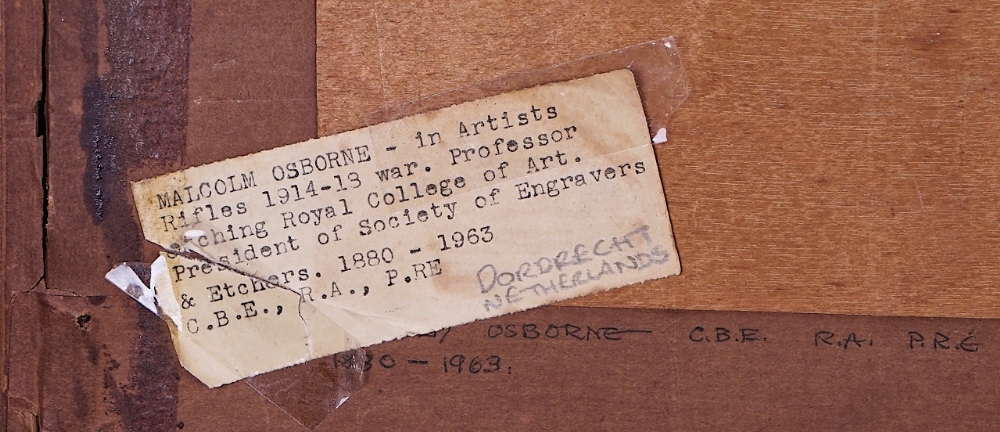 MALCOLM OSBORNE - in Artists
Rifles 1914-18 war. Professor
etching Royal College of Art.
President of Society of Engravers
& Etchers. 1880 - 1963
C.B.E., R.A., P.RE
DORDRECHT
NETHERLANDS
OSBORNE C.B.E. R.A. P.R.E
1880 - 1963.